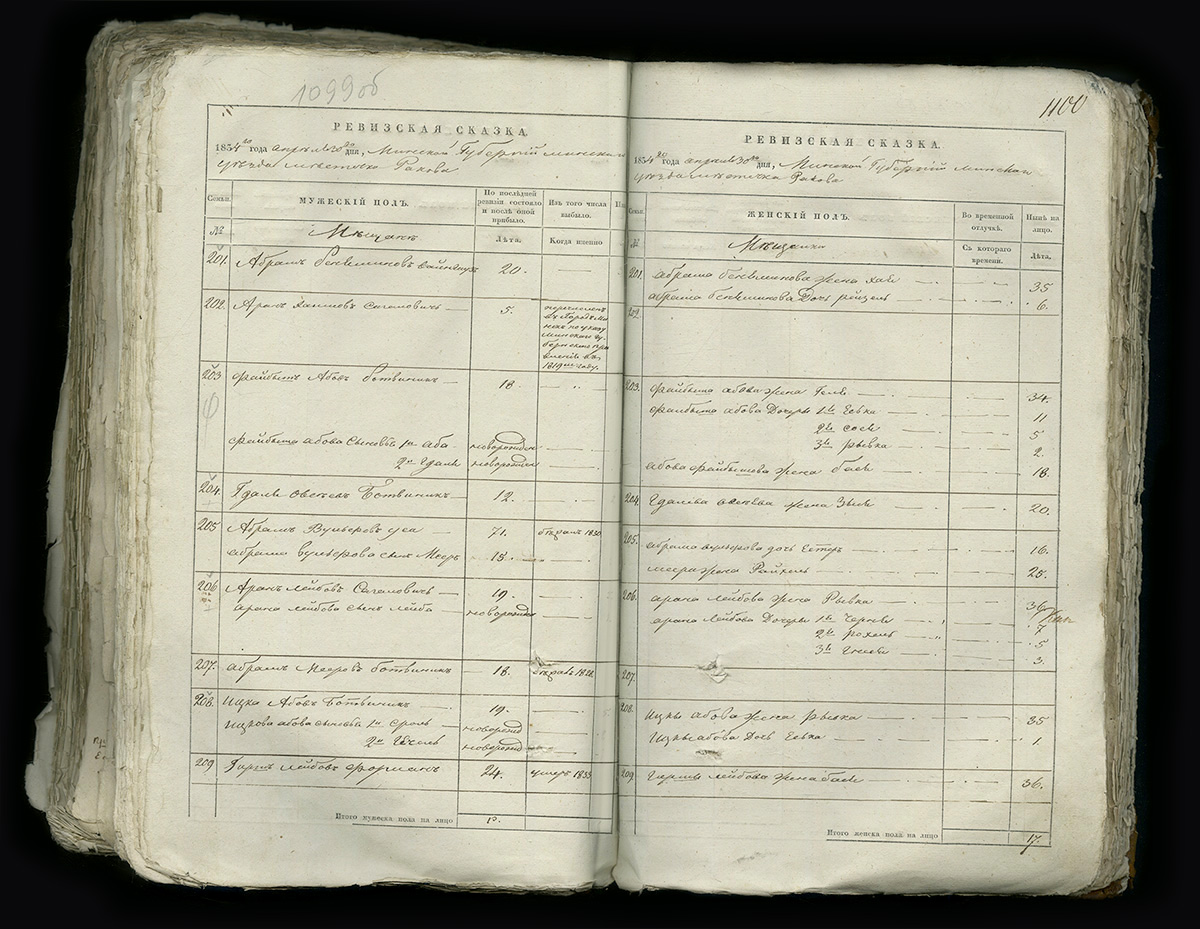 1099об
РЕВИЗСКАЯ СКАЗКА.
1834го года апреля 30го дня, Минской Губернiи Минскаго
уезда местечка Ракова
Семьи.
МУЖЕСКIЙ ПОЛЪ.
По последней ревизiи состояло и после оной прибыло.
Изъ того числа выбыло.
№
Мѣщанъ
Лѣта.
Когда именно
201. Абрамъ Бенiаминовъ 20.
202. Аранъ Хаимовъ Сагаловичъ 5.
перечисленъ
въ городъ Ми
нскъ по указу
Минскаго гу
бернскаго пра
вленiя въ
1819мъ году.
203 Файбышъ Абовъ Ботвиникъ 18
Файбыша Абова Сыновья 1й Аба новорожден
2й Гдаль новорожден
204. Гдаль Ботвиникъ 12.
205 Абрамъ Вульфовъ 71. 1830
Абрама Вульфова сынъ Мееръ 15.
206 Аранъ Лейбовъ Сагаловичъ 19.
Арана Лейбова сынъ Лейба новорожден
207. Абрамъ Мееровъ Ботвиникъ 18. 1828
208. Ицка Абовъ Ботвиникъ 19.
Ицкова Абова сыновья 1й Сроль новорожден
2й новорожден
209 Гиршъ Лейбовъ Форманъ 24. умеръ 1833
Итого мужеска пола на лицо
1100
РЕВИЗСКАЯ СКАЗКА.
1834го года апреля 30го дня, Минской Губернiи Минскаго
уезда местечка Ракова
Семьи.
ЖЕНСКIЙ ПОЛЪ.
Во временной отлучкѣ.
Нынѣ на лицо.
№
Мѣщанки
Съ котораго времени.
Лѣта.
201. Абрама Бенiаминова жена Хая 35
Абрама Бенiаминова Дочь Рейзель 6.
202.
203. Файбыша Абова жена 34.
Файбыша Абова Дочери 1я Есвка 11
2я Сося 5
3я Рывка 2.
Абова Файбышова жена Бася 18.
204. Гдалiя жена 20.
205. Абрама Вульфова дочь Естеръ 16.
Меера жена Райхель 25.
206. Арана Лейбова жена Рывка 36
Арана Лейбова Дочери 1я Черня 7
2я Рохель 5
3я Гнеся 3.
207.
208. Ицки Абова жена Рывка 35
Ицки Абова Дочь Есвка 1.
209. Гирша Лейбова жена Бася 36.
Итого женска пола на лицо 17.